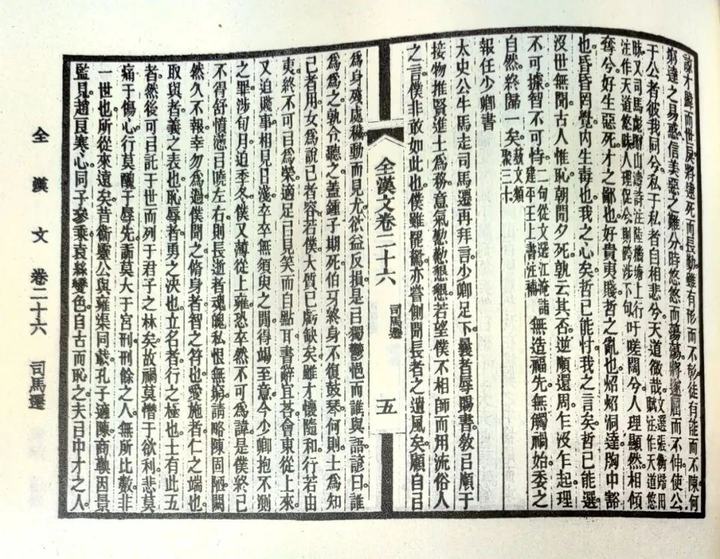 諒才韙而世戾將逮死而長勤雖有形而不彰徒有能而不陳何
窮達之易惑信美惡之難分時悠悠而蕩蕩將遂屈而不伸使公
于公者彼我同兮私于私者自相悲兮天道微哉
賦注作天道悠
昧又司馬彪贈山濤詩注陸機塘上行
注作天道悠昧人理促兮則誤涉下句
吁嗟闊兮人理顯然相傾
奪兮好生惡死才之鄙也好貴夷賤哲之亂也炤炤洞達胸中豁
也昏昏罔覺內生毒也我之心矣哲已能忖我之言矣哲已能選
沒世無聞古人惟恥朝聞夕死孰云其否逆順還周乍沒乍起理
不可據智不可恃
二句從文選江淹詣
建平王上書注補
無造福先無觸禍始委之
自然終歸一矣
藝文類
聚三十
報任少卿書
太史公牛馬走司馬遷再拜言少卿足下曩者辱賜書教㠯順于
接物推賢進士為務意氣勤勤懇懇若望僕不相師而用流俗人
之言僕非敢如此也僕雖罷駑亦嘗側聞長者之遺風矣顧自㠯
全漢文卷二十六
司馬遷
五
為身殘處穢動而見尤欲益反損是㠯獨鬱悒而誰與語諺曰誰
為為之孰令聽之蓋鍾子期死伯牙終身不復鼓琴何則士為知
己者用女為說己者容若僕大質已虧缺矣雖才懷隨和行若由
夷終不可㠯為榮適足㠯見笑而自點耳書辭宜荅會東從上來
又迫賤事相見日淺卒卒無須臾之閒得竭至意今少卿抱不測
之罪涉旬月迫季冬僕又薄從上雍恐卒然不可為諱是僕終已
不得舒憤懣㠯曉左右則長逝者魂魄私恨無窮請略陳固陋闕
然久不報幸勿為過僕聞之脩身者智之符也愛施者仁之端也
取與者義之表也恥辱者勇之決也立名者行之極也士有此五
者然後可㠯託于世而列于君子之林矣故禍莫憯于欲利悲莫
痛于傷心行莫醜于辱先詬莫大于宮刑刑餘之人無所比數非
一世也所從來遠矣昔衞靈公與雍渠同載孔子適陳商鞅因景
監見趙良寒心同子參乘袁絲變色自古而恥之夫㠯中才之人
全漢文 卷二十六 司馬遷